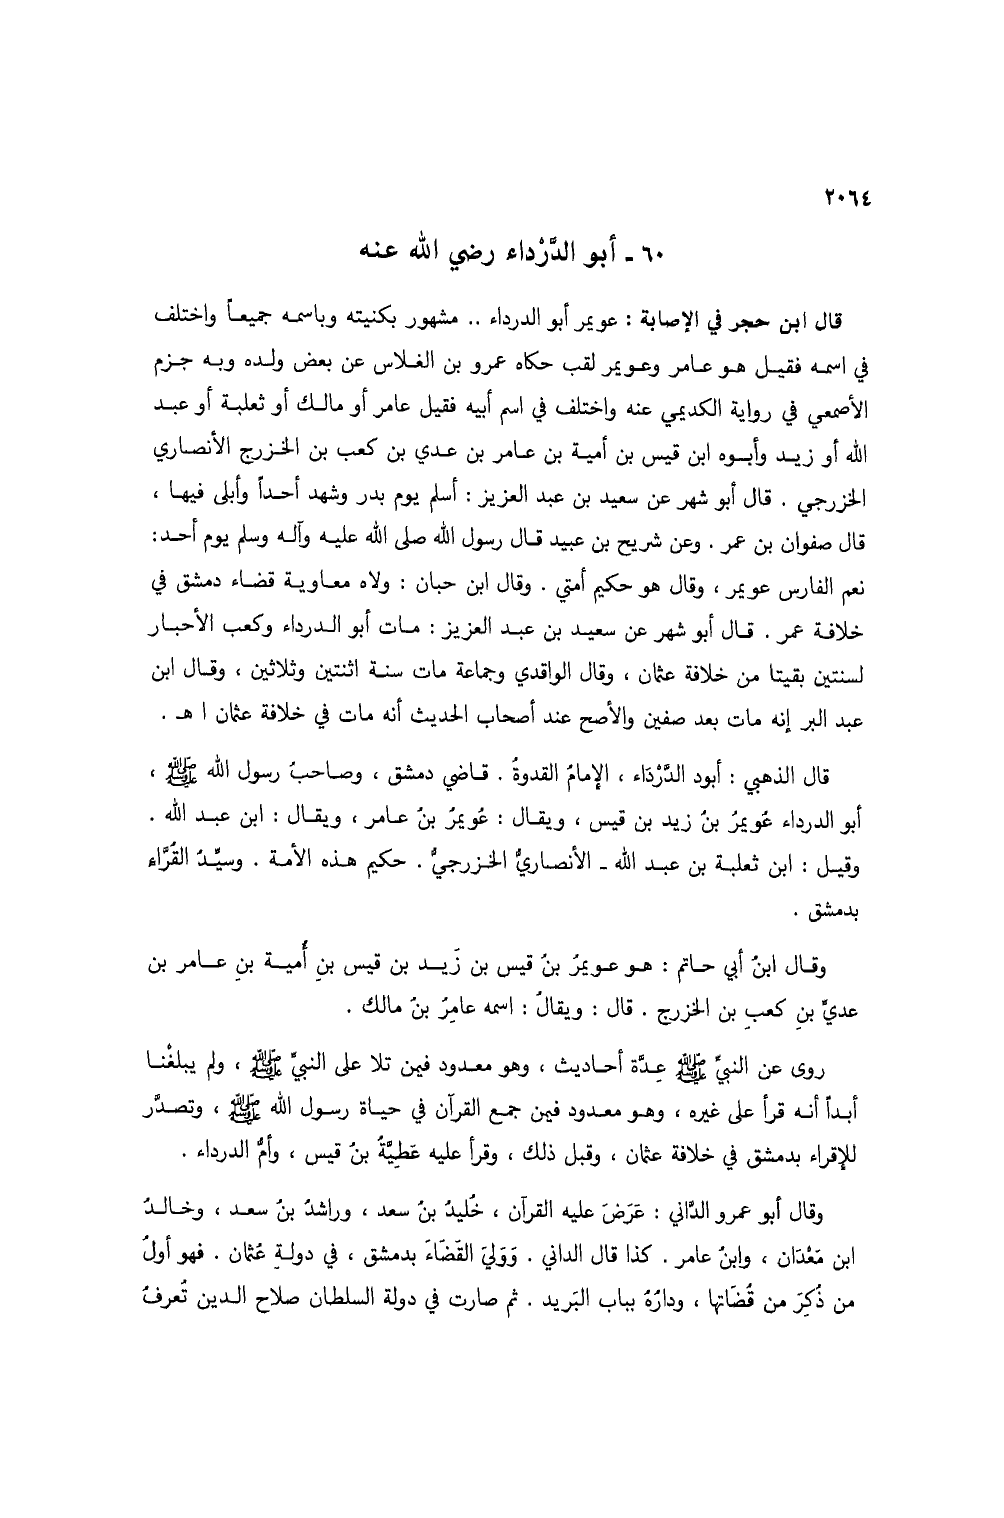 ٢٠٦٤
٦٠ ـ أبو الدَّرْداء رضي الله عنه
قال ابن حجر في الإصابة : عويمر أبو الدرداء .. مشهور بكنيته وباسمه جميعاً واختلف
في اسمه فقيل هو عامر وعويمر لقب حكاه عمرو بن الفلاس عن بعض ولده وبه جزم
الأصمعي في رواية الكديمي عنه واختلف في اسم أبيه فقيل عامر أو مالك أو ثعلبة أو عبد
الله أو زيد وأبوه ابن قيس بن أمية بن عامر بن عدي بن كعب بن الخزرج الأنصاري
الخزرجي . قال أبو شهر عن سعيد بن عبد العزيز : أسلم يوم بدر وشهد أحداً وأبلى فيها ،
قال صفوان بن عمر . وعن شريح بن عبيد قال رسول الله صلى الله عليه وآله وسلم يوم أحد:
نعم الفارس عويمر ، وقال هو حكيم أمتي . وقال ابن حبان : ولاه معاوية قضاء دمشق في
خلافة عمر . قال أبو شهر عن سعيد بن عبد العزيز : مات أبو الدرداء وكعب الأحبار
لسنتين بقيتا من خلافة عثمان ، وقال الواقدي وجماعة مات سنة اثنتين وثلاثين ، وقال ابن
عبد البر إنه مات بعد صفين والأصح عند أصحاب الحديث أنه مات في خلافة عثمان ا هـ .
قال الذهبي : أبود الدَّرْدَاء ، الإمامُ القدوةُ . قاضي دمشق ، وصاحبُ رسول الله ﷺ ،
أبو الدرداء عُويمرُ بنُ زيد بن قيس ، ويقال : عُويمرُ بنُ عامر ، ويقال : ابن عبد الله .
وقيل : ابن ثعلبة بن عبد الله ـ الأنصاريُّ الخزرجيُّ . حكيم هذه الأمة . وسيِّدُ القُرَّاء
بدمشق .
وقال ابنُ أبي حاتم : هو عويمرُ بنُ قيس بن زَيد بن قيس بنِ أُمية بنِ عامر بن
عديِّ بنِ كعبِ بن الخزرج . قال : ويقالُ : اسمه عامِرُ بنُ مالك .
روى عن النبيِّ ﷺ عِدَّة أحاديث ، وهو معدود فيمن تلا على النبيِّ ﷺ ، ولم يبلغْنا
أبداً أنه قرأ على غيره ، وهو معدود فيمن جمع القرآن في حياة رسول الله ﷺ ، وتصدَّر
للإقراء بدمشق في خلافة عثمان ، وقبل ذلك ، وقرأ عليه عَطِيَّةُ بنُ قيس ، وأمُّ الدرداء .
وقال أبو عمرو الدَّاني : عَرَضَ عليه القرآن ، خُليدُ بنُ سعد ، وراشدُ بنُ سعد ، وخالدُ
ابن مَعْدَان ، وابنُ عامر . كذا قال الداني . وَوَليَ القَضَاءَ بدمشق ، في دولةِ عُثمان . فهو أولُ
من ذُكِرَ من قُضَاتها ، ودارُهُ بباب البَريد . ثم صارت في دولة السلطان صلاح الدين تُعرفُ